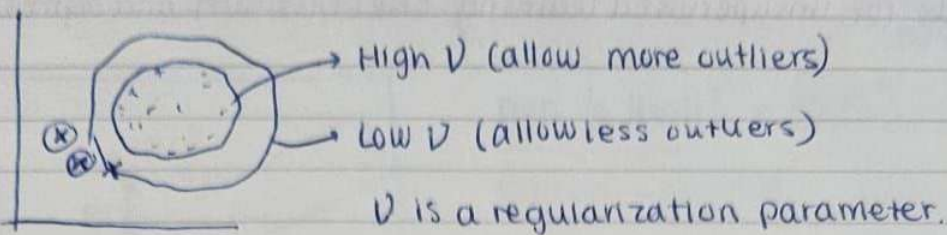 High ν (allow more outliers)
Low ν (allow less outliers)
ν is a regularization parameter.